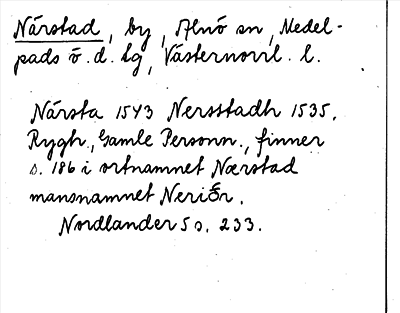 Närstad, by, Alnö sn, Medel-
pads ö. d. Lg, Västernorrl. l.
Närsta 1543 Nersstadh 1535.
Rygh, Gamle Personn., finner
s. 186 i ortnamnet Nærstad
mansnamnet Neriðr.
Nordlander 5 s. 233.